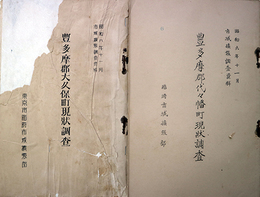 昭和六年十一月
市域擴張調査資料
豐多摩郡代々幡町現狀調査
臨時市域擴張部
昭和六年十一月
市域擴張調査資料
豐多摩郡大久保町現狀調査
東京市臨時市域擴張部